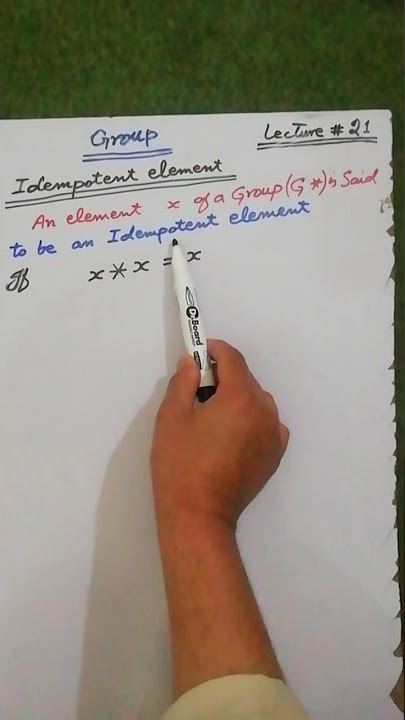 Group
Lecture # 21
Idempotent element
An element x of a Group (G *) is Said
to be an Idempotent element
If x * x = x
Board